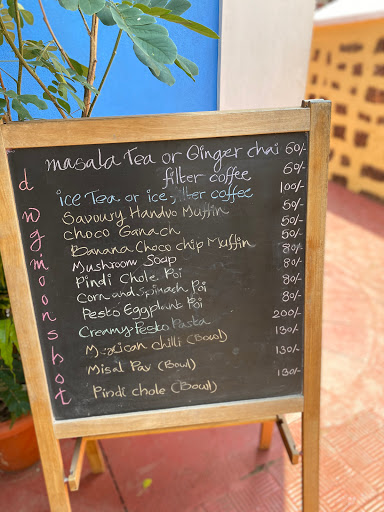 masala Tea or Ginger chai 60/-
filter coffee 60/-
ice Tea or ice filter coffee 100/-
Savoury Handvo Muffin 50/-
Choco Ganach 50/-
Banana Choco chip Muffin 50/-
Mushroom Soap 80/-
Pindi Chole Poi 80/-
Corn and Spinach Poi 80/-
Pesto Eggplant Poi 80/-
Creamy Pesto Pasta 200/-
Mexican chilli (Bowl) 130/-
Misal Pav (Bowl) 130/-
Pindi chole (Bowl) 130/-
d
g
m
o
o
n
s
h
o
t